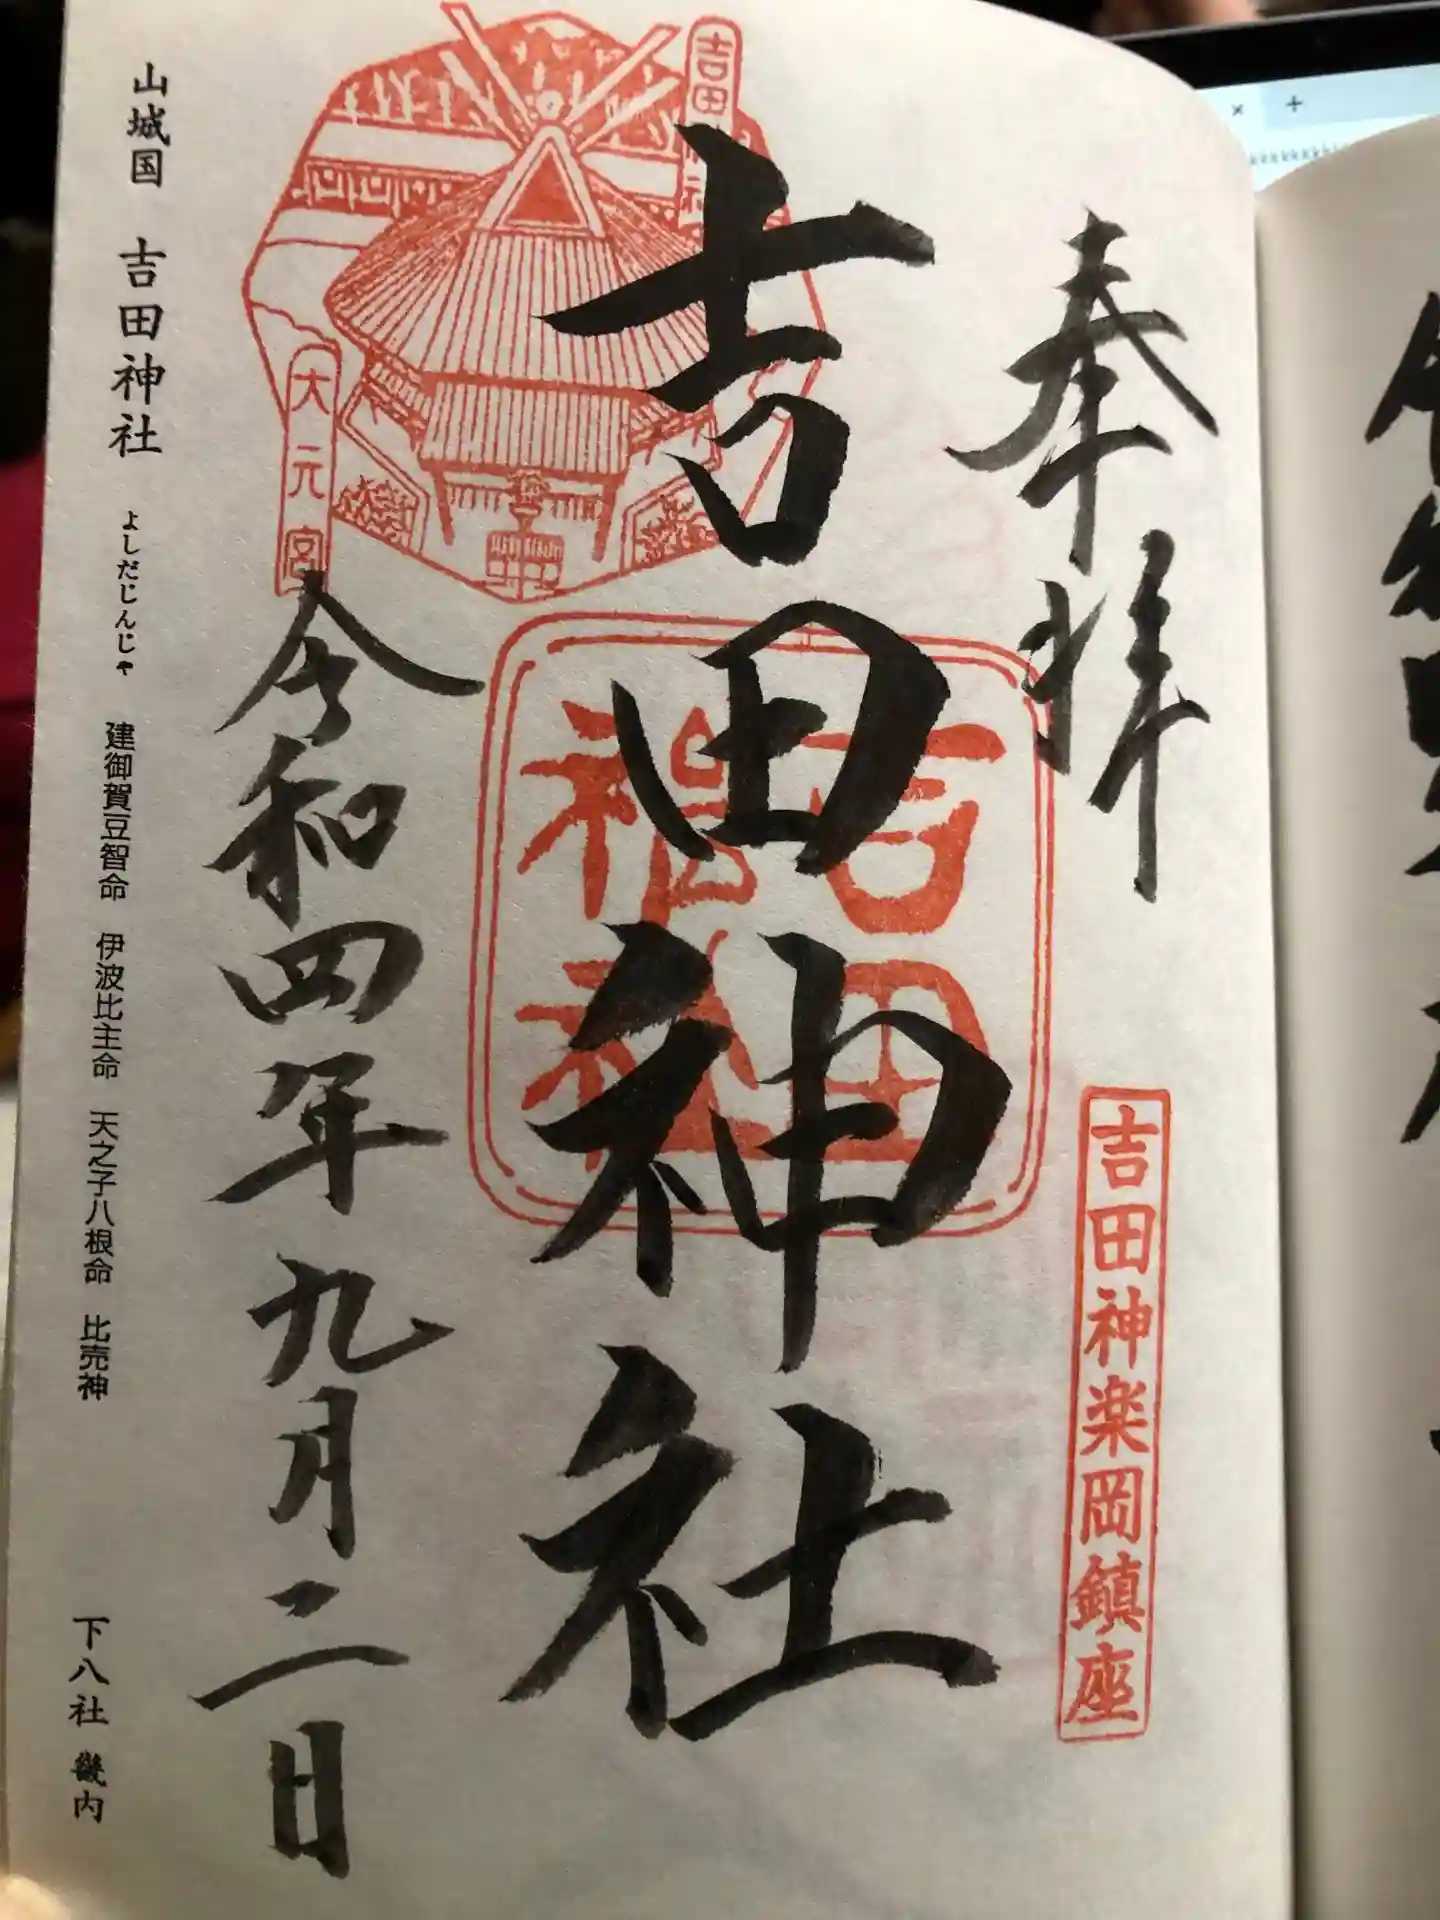 奉拝
吉田神楽岡鎮座
吉田神社
吉田神社
吉田
大元宮
令和四年九月二日
山城国 吉田神社 よしだじんじゃ 建御賀豆智命 伊波比主命 天之子八根命 比売神 下八社 畿内